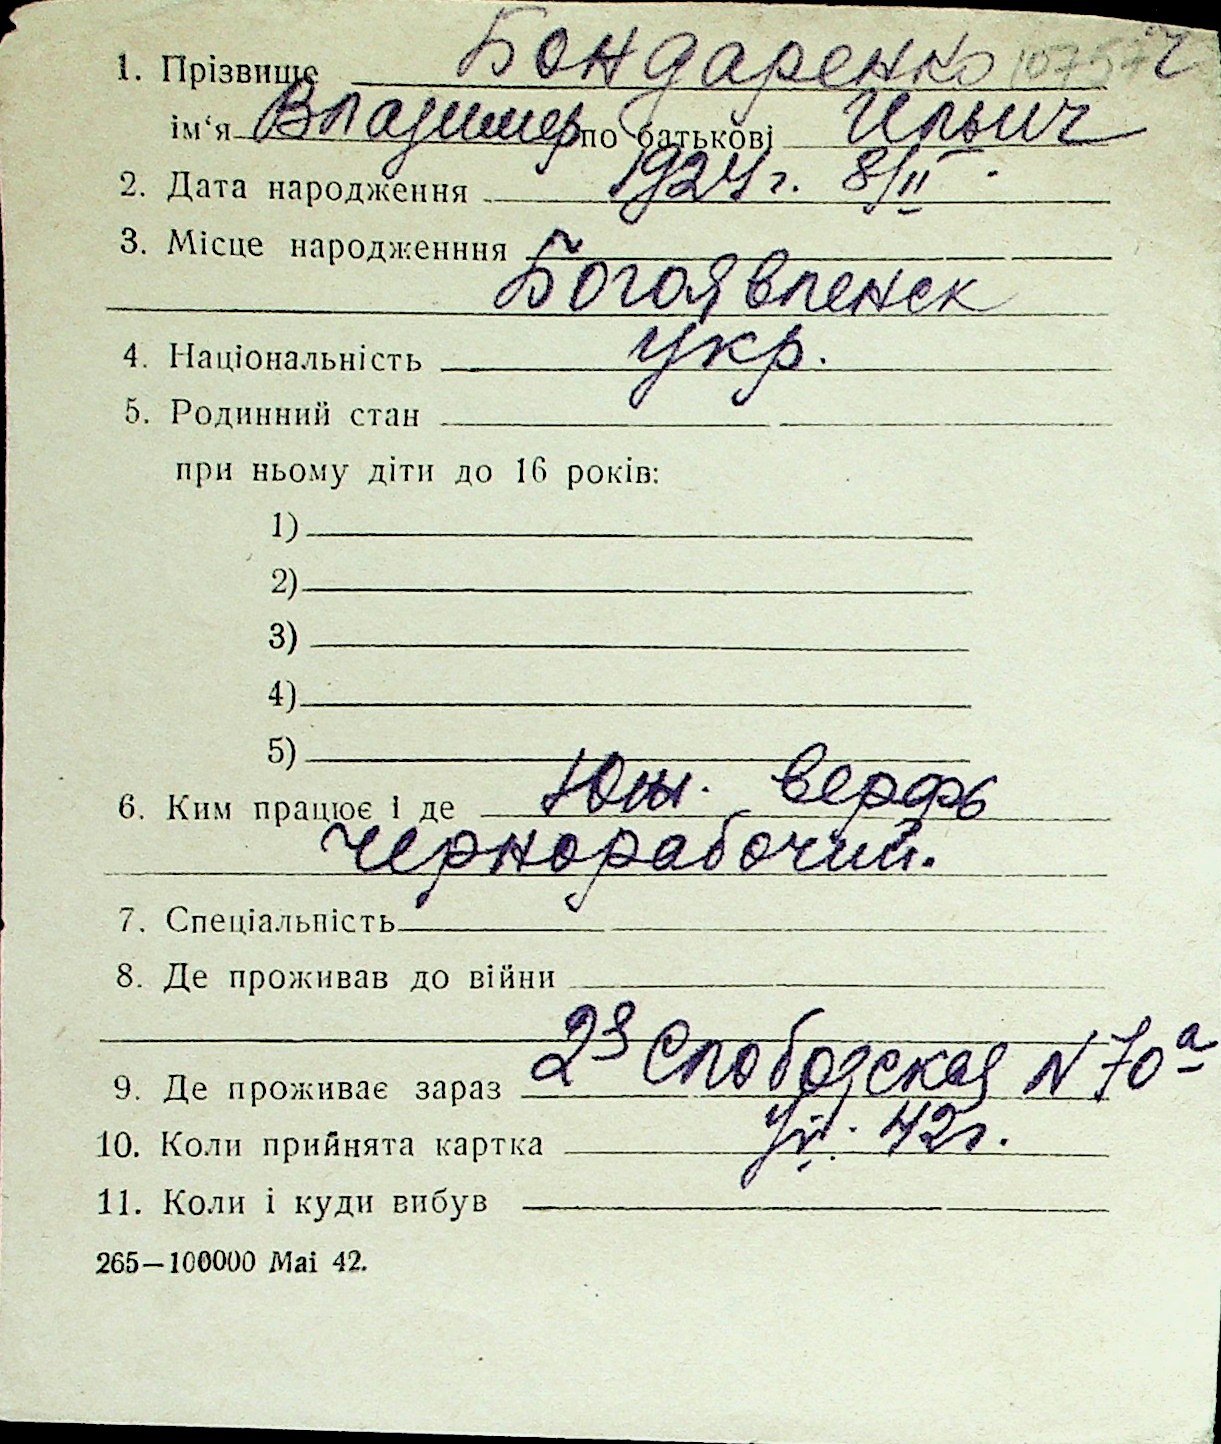 1. Прізвище Бондаренко
ім‘я Владимир по батькові Ильич
2. Дата народження 1924 г. 8/II
3. Місце народженння
Богоявленск
4. Національність укр.
5. Родинний стан
при ньому діти до 16 років:
1)
2)
3)
4)
5)
6. Ким працює і де Юж. верфь
чернорабочий.
7. Спеціальність
8. Де проживав до війни
9. Де проживає зараз 2я Слободская N 70а
10. Коли прийнята картка 42 г.
11. Коли і куди вибув
265—100000 Mai 42.